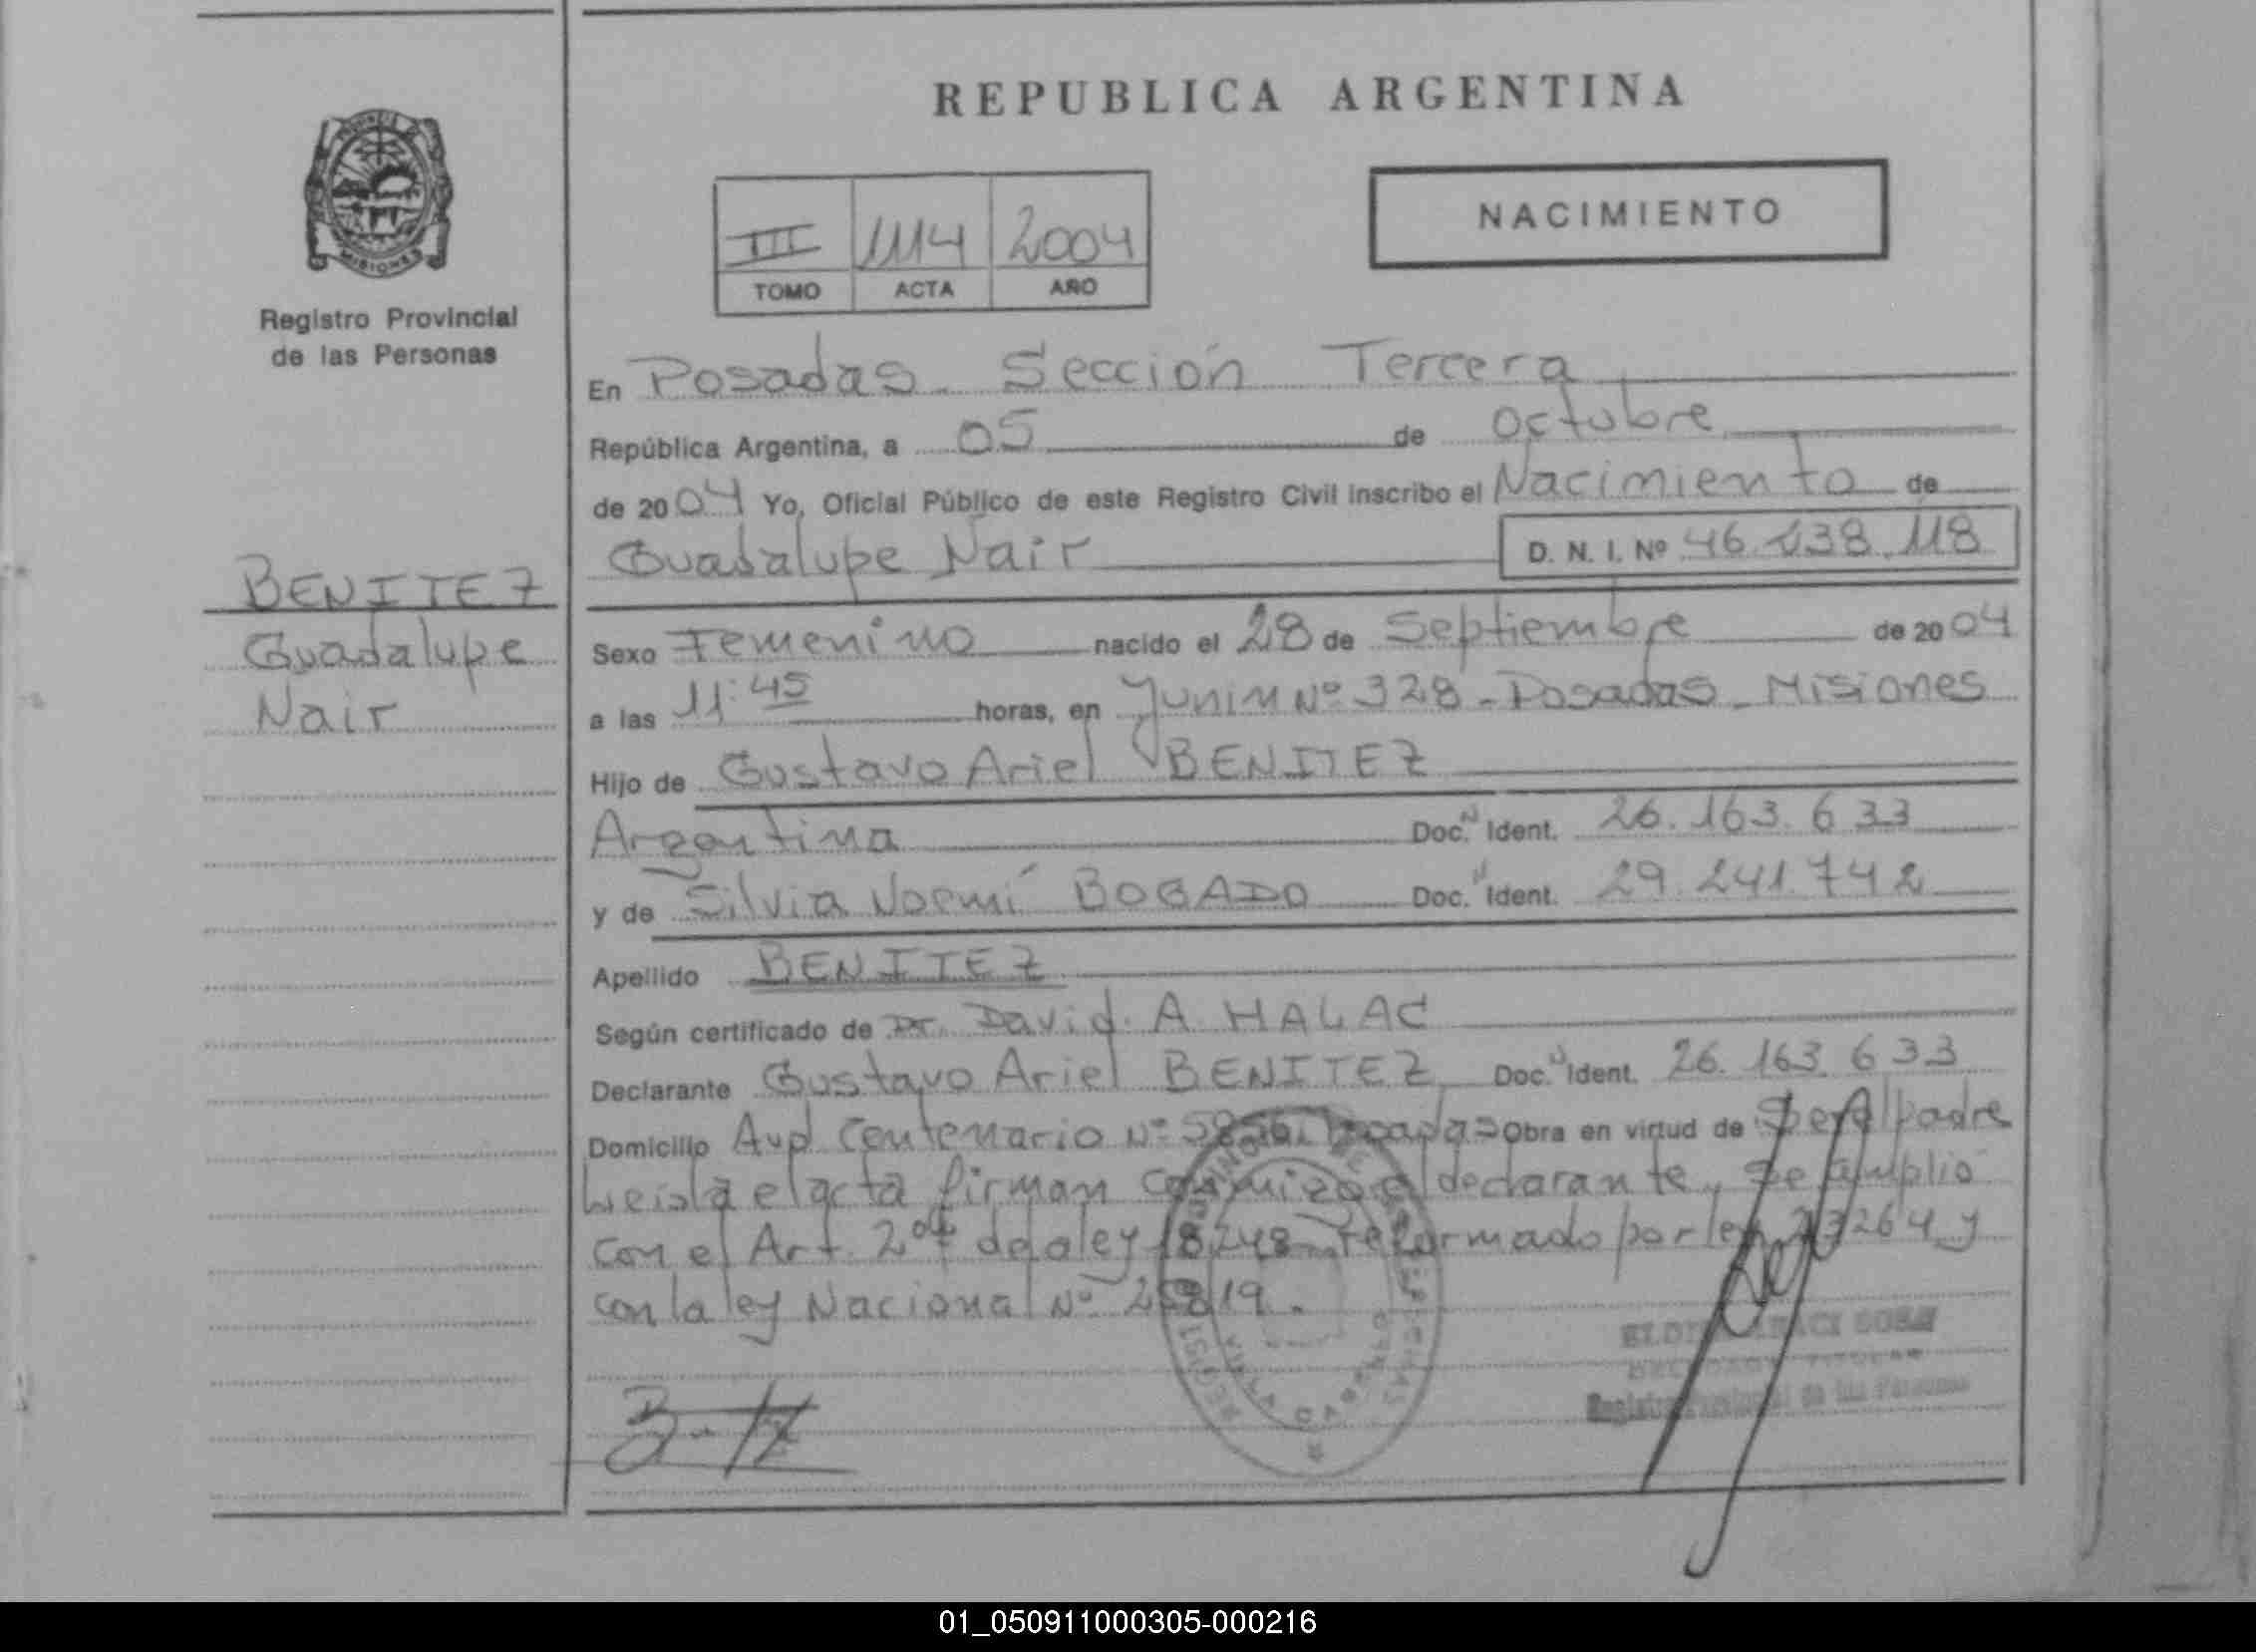 REPUBLICA ARGENTINA
NACIMIENTO
III 1114 2004
TOMO ACTA AÑO
MISIONES
Registro Provincial
de las Personas
BENITEZ
Guadalupe
Nair
En Posadas - Sección Tercera
República Argentina, a 05 de octubre
de 2004 Yo, Oficial Público de este Registro Civil inscribo el Nacimiento de
Guadalupe Nair D. N. I. Nº 46.238.118
Sexo Femenino nacido el 28 de Septiembre de 2004
a las 11:45 horas, en Junin Nº 328 - Posadas - Misiones
Hijo de Gustavo Ariel BENITEZ
Argentina Doc. N Ident. 26.163.633
y de Silvia Noemí BOGADO Doc. N Ident. 29.241.742
Apellido BENITEZ
Según certificado de Dr. David. A HALAC
Declarante Gustavo Ariel BENITEZ Doc. N Ident. 26.163.633
Domicilio Avd Centenario Nº Posadas Obra en virtud de Ser el padre
Leida el acta firman conmigo el declarante, Se amplio
con el Art. 2 de la ley 18248 reformado por ley 23264 y
con la ley Nacional Nº
Registro Provincial de las Personas
01_050911000305-000216